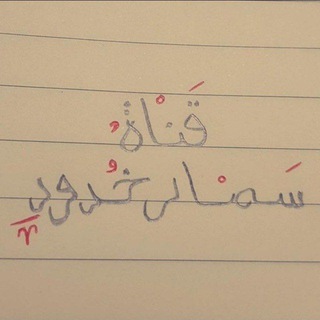 قَناةُ
سَمنار خُدود
٢